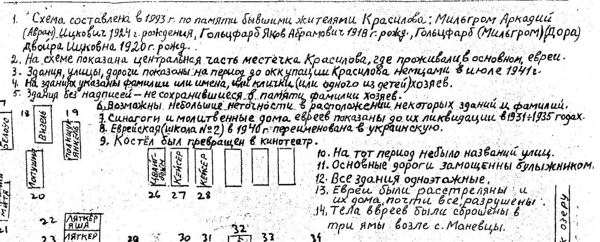 1. Схема составлена в 1993 г. по памяти бывшими жителями Красилова: Мильгром Аркадий
(Аврам) Ицкович 1924 г. рождения, Гольцфарб Яков Абрамович 1918 г. рожд., Гольцфарб (Мильгром) (Дора)
Двойра Ицковна 1920 г. рожд.
2. На схеме показана центральная часть местечка Красилова, где проживали в основном, евреи.
3. Здания, улицы, дороги показаны на период до оккупации Красилова немцами в июле 1941 г.
4. На зданиях указаны фамилии или имена, или клички (или одного из детей) хозяев.
5. Здания без надписей – не сохранившиеся в памяти фамилии хозяев.
6. Возможны небольшие неточности в расположении некоторых зданий и фамилий.
7. Синагоги и молитвенные дома евреев показаны до их ликвидации в 1931÷1935 годах.
8. Еврейская (школа №2) в 1940 г. переименована в украинскую.
9. Костёл был превращен в кинотеатр.
10. На тот период небыло названий улиц.
11. Основные дороги замощенны булыжником.
12. Все здания одноэтажные.
13. Евреи были расстреляны и
их дома, почти все, разрушены.
14. Тела евреев были сброшены в
три ямы возле с. Маневцы.
18
19
20
26 27 28
КЕЙСЕР
22 ЛЯТКЕР
ЯША
21
23 ЛЯТКЕР
29 30 31 32 33 34
ОЗЕРУ